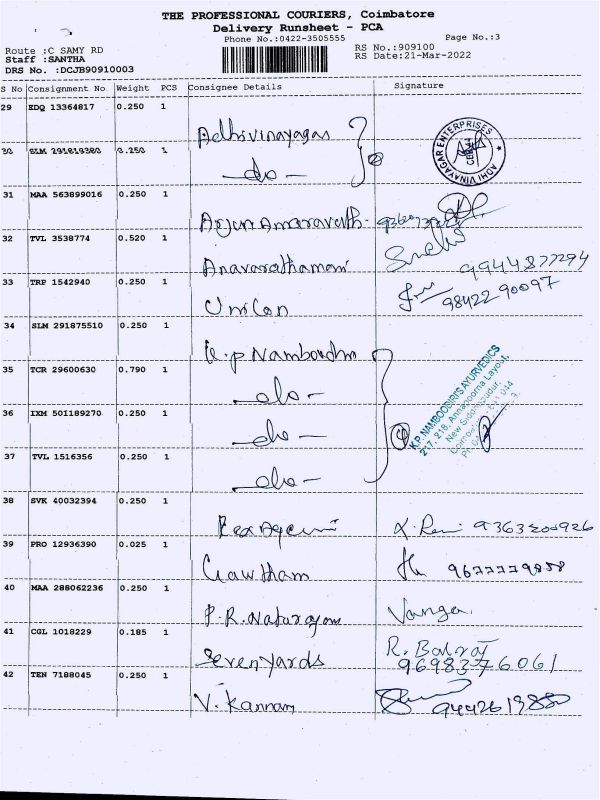 THE PROFESSIONAL COURIERS, Coimbatore
Delivery Runsheet - PCA
Phone No.:0422-3505555
Page No.:3
Route :C SAMY RD
RS No.:909100
Staff :SANTHA
RS Date:21-Mar-2022
DRS No. :DCJB90910003
S No Consignment No Weight PCS Consignee Details Signature
29 EDQ 13364817 0.250 1
Adhivinayagar
ADHI VINAYAGAR ENTERPRISES
30 SLM 0.250 1
- do -
31 MAA 563899016 0.250 1
Arjun
32 TVL 3538774 0.520 1
9944877294
33 TRP 1542940 0.250 1
Unicon 98422 90097
34 SLM 291875510 0.250 1
K.P. NAMBOODIRIS AYURVEDICS
217, 218, Annapoorna Layout,
New Siddhapudur,
35 TCR 29600630 0.790 1
- do -
36 IXM 501189270 0.250 1
- do -
4
37 TVL 1516356 0.250 1
- do -
38 SVK 40032394 0.250 1
9363200926
39 PRO 12936390 0.025 1
Gawtham 9677779858
40 MAA 288062236 0.250 1
P.R. Natarajan
41 CGL 1018229 0.185 1
Sevenyards R. Balraj
9698376061
42 TEN 7188045 0.250 1
V. Kannan